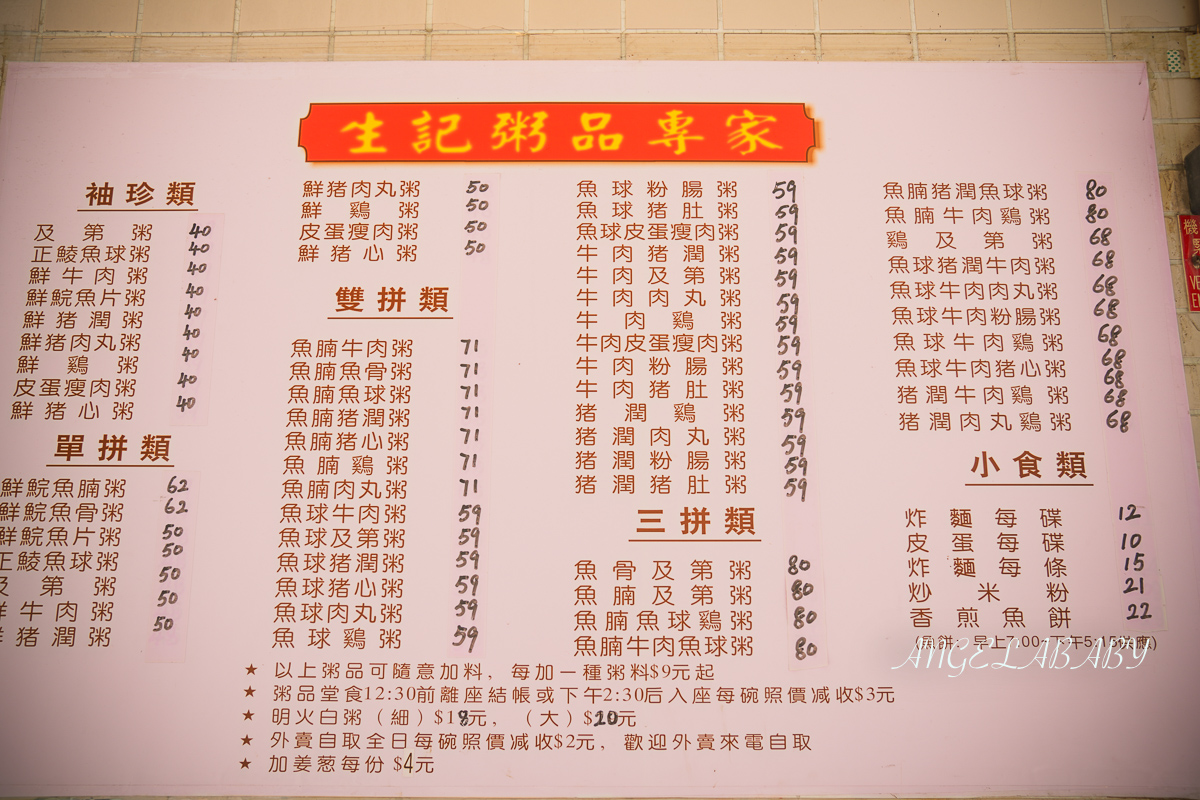 生記粥品專家
袖珍類
及第粥 40
正鯪魚球粥 40
鮮牛肉粥 40
鮮鯇魚片粥 40
鮮猪潤粥 40
鮮猪肉丸粥 40
鮮鷄粥 40
皮蛋瘦肉粥 40
鮮猪心粥 40
單拼類
鮮鯇魚腩粥 62
鮮鯇魚骨粥 62
鮮鯇魚片粥 50
正鯪魚球粥 50
及第粥 50
鮮牛肉粥 50
鮮猪潤粥 50
鮮猪肉丸粥 50
鮮鷄粥 50
皮蛋瘦肉粥 50
鮮猪心粥 50
雙拼類
魚腩牛肉粥 71
魚腩魚骨粥 71
魚腩魚球粥 71
魚腩猪潤粥 71
魚腩猪心粥 71
魚腩鷄粥 71
魚腩肉丸粥 71
魚球牛肉粥 59
魚球及第粥 59
魚球猪潤粥 59
魚球猪心粥 59
魚球肉丸粥 59
魚球鷄粥 59
魚球粉腸粥 59
魚球猪肚粥 59
魚球皮蛋瘦肉粥 59
牛肉猪潤粥 59
牛肉及第粥 59
牛肉肉丸粥 59
牛肉鷄粥 59
牛肉皮蛋瘦肉粥 59
牛肉粉腸粥 59
牛肉猪肚粥 59
猪潤鷄粥 59
猪潤肉丸粥 59
猪潤粉腸粥 59
猪潤猪肚粥 59
三拼類
魚骨及第粥 80
魚腩及第粥 80
魚腩魚球鷄粥 80
魚腩牛肉魚球粥 80
魚腩猪潤魚球粥 80
魚腩牛肉鷄粥 80
鷄及第粥 68
魚球猪潤牛肉粥 68
魚球牛肉肉丸粥 68
魚球牛肉粉腸粥 68
魚球牛肉鷄粥 68
魚球牛肉猪心粥 68
猪潤牛肉鷄粥 68
猪潤肉丸鷄粥 68
小食類
炸麵每碟 12
皮蛋每碟 10
炸麵每條 15
炒米粉 21
香煎魚餅 22
(魚餅：早上7:00-下午5:15供應)
ANGELABABY
★ 以上粥品可隨意加料，每加一種粥料$9元起
★ 粥品堂食12:30前離座結帳或下午2:30后入座每碗照價減收$3元
★ 明火白粥（細）$18元，（大）$20元
★ 外賣自取全日每碗照價減收$2元，歡迎外賣來電自取
★ 加姜葱每份 $4元